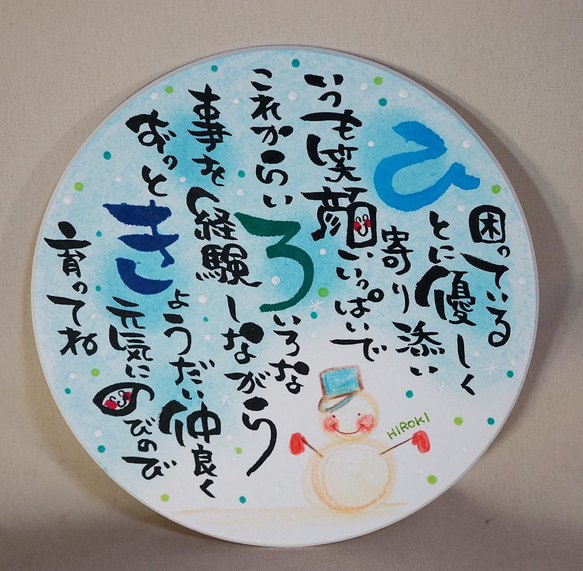 困っている
ひとに優しく
寄り添い
いつも笑顔いっぱいで
これからい
ろいろな
事を経験しながら
ずっと
きょうだい仲良く
元気にのびのび
育ってね
HIROKI